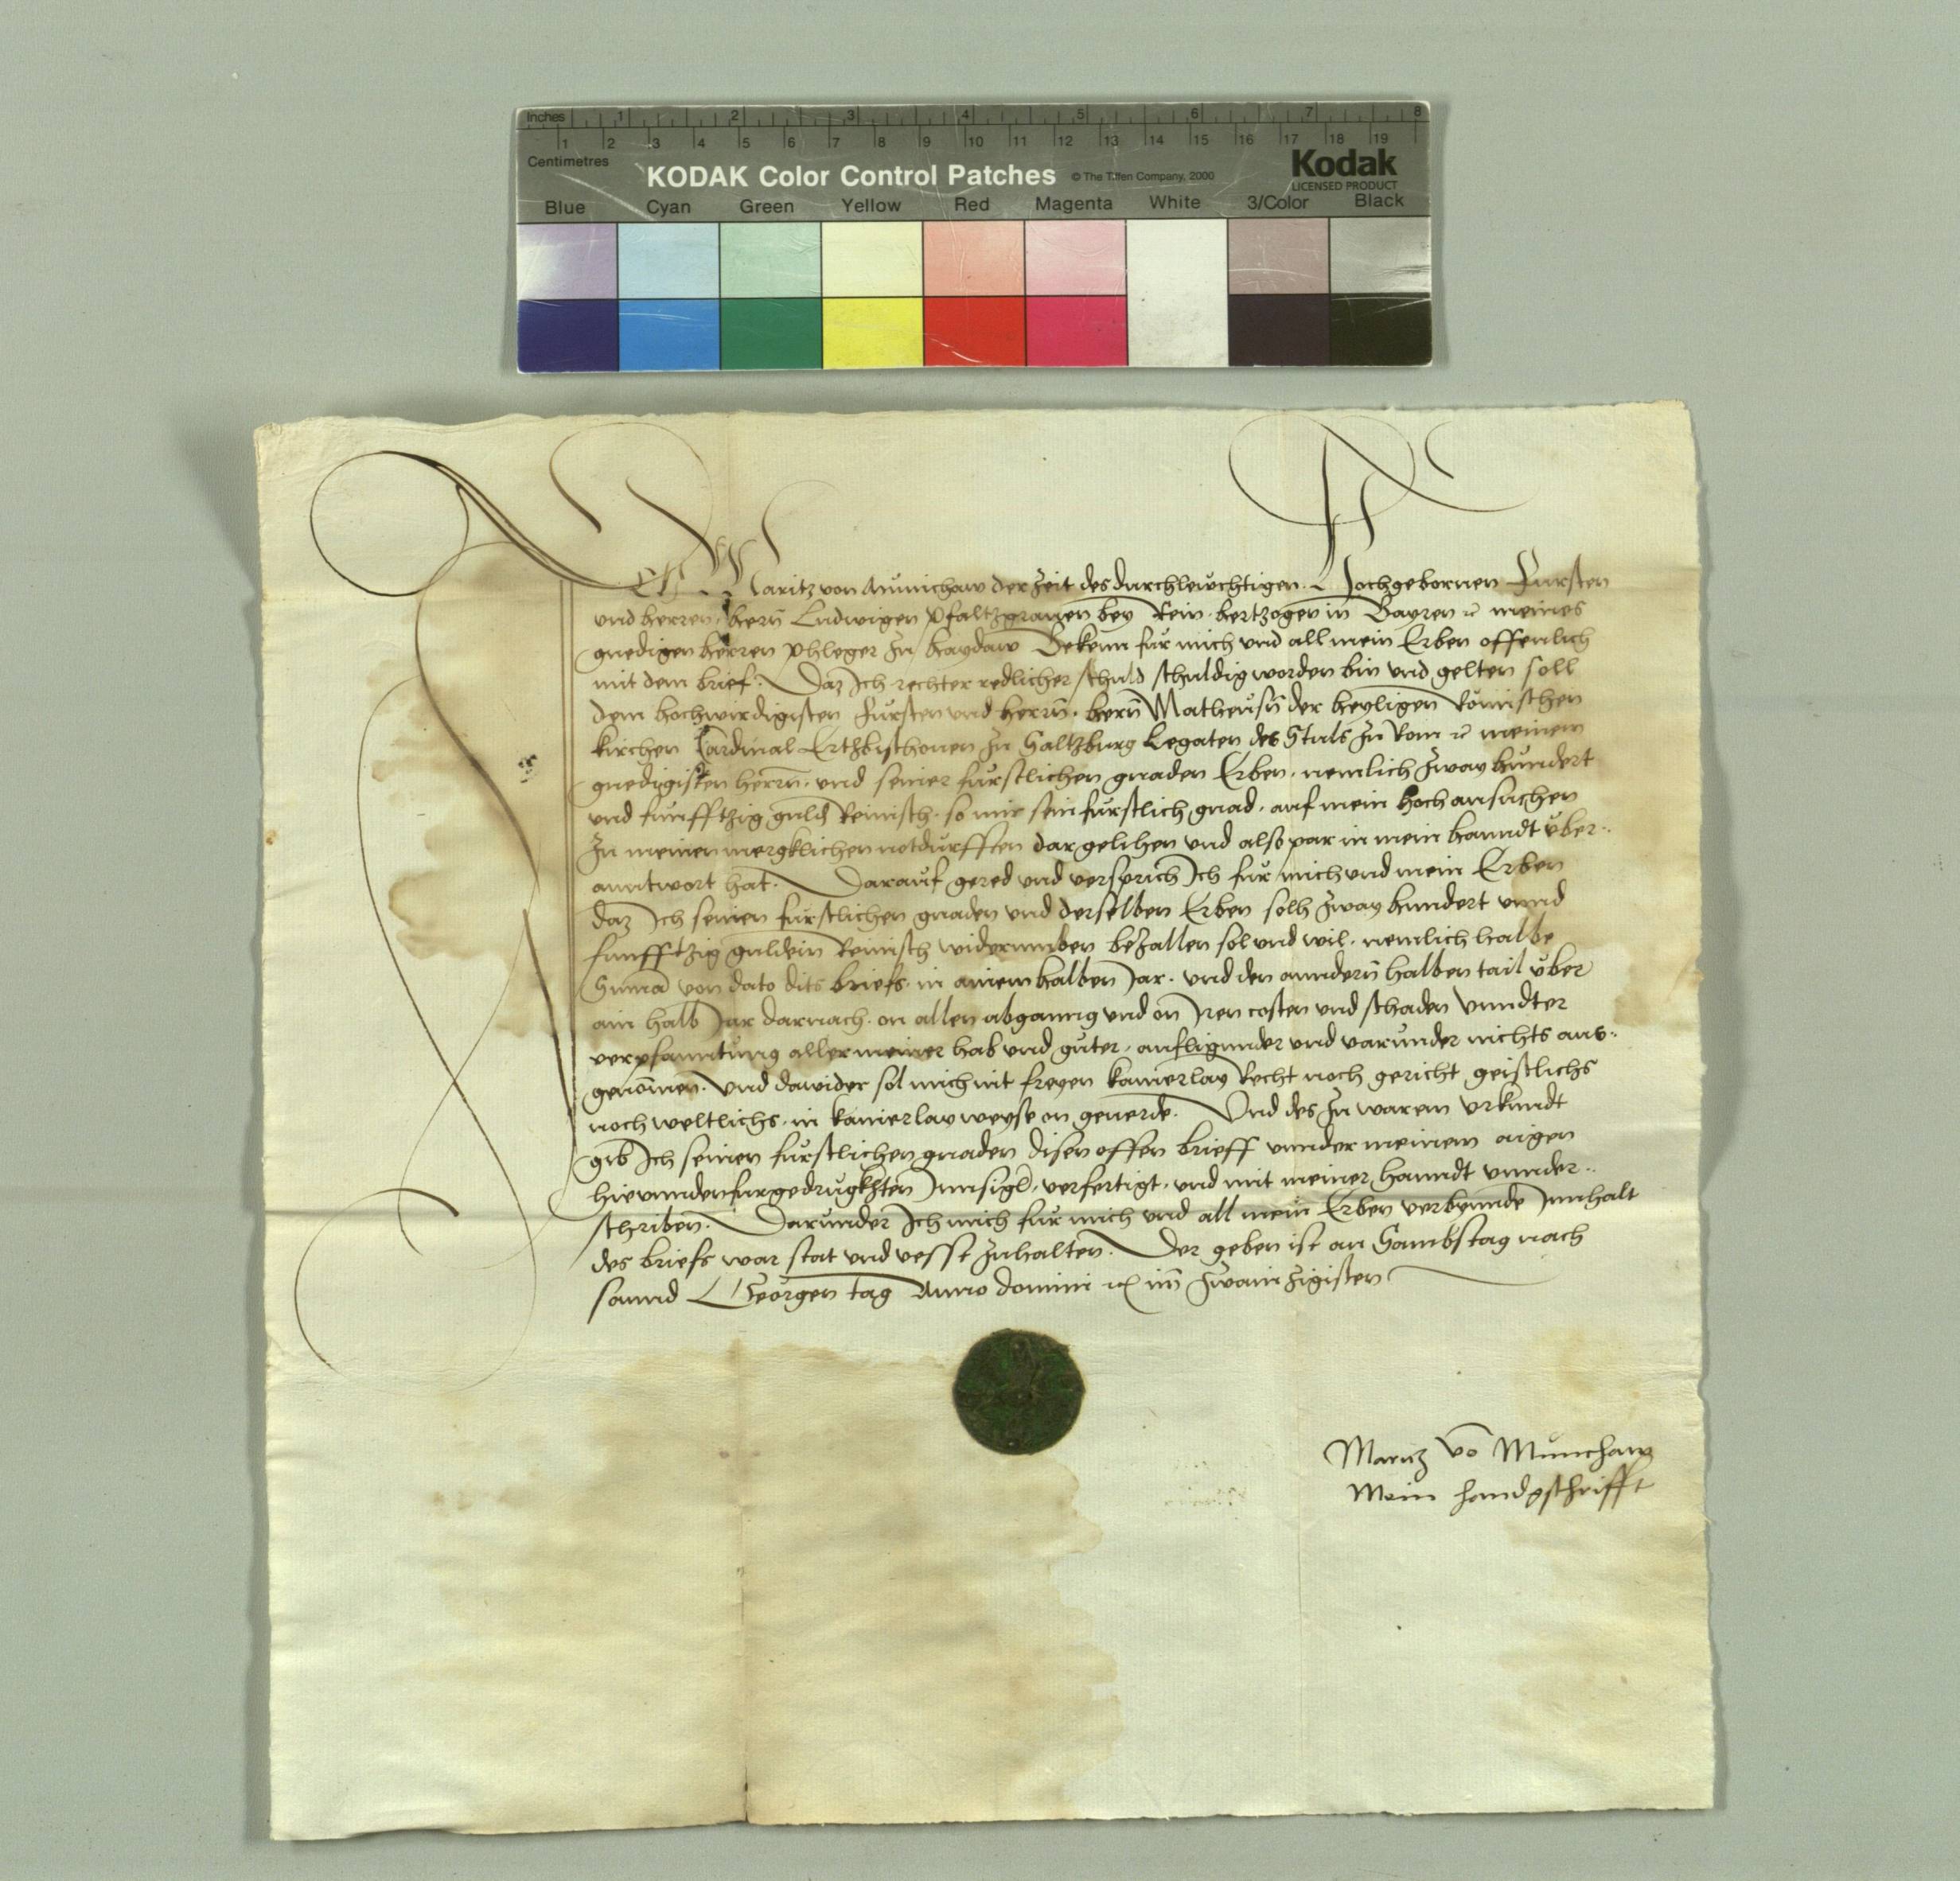 Inches 1 2 3 4 5 6 7 8
1 2 3 4 5 6 7 8 9 10 11 12 13 14 15 16 17 18 19
Centimetres
KODAK Color Control Patches © The Tiffen Company, 2000 Kodak
LICENSED PRODUCT
Blue Cyan Green Yellow Red Magenta White 3/Color Black
Ich Maritz von Münichaw der Zeit des durchleuchtigen Hochgebornnen Fursten
und herren, hern̄ Ludwigen Pfaltzgrauen bey Rein hertzogen in Bayren ꝛc meines
gnedigen herren Phleger zu haydaw Bekenn für mich und all mein Erben offenlich
mit dem brief. Daz Ich rechter redlicher schuld schuldig worden bin und gelten soll
dem hochwirdigisten Fürsten und herrn̄, hern̄ Matheusn̄ der heyligen Römischen
kirchen Cardinal Ertzbischouen zu Saltzburg Legaten des Stuls zu Rom ꝛc meinem
gnedigisten herrn̄, und seiner fürstlichen gnaden Erben, nemlich zway hundert
und funfftzig guld̄ Reinisch, so mir sein fürstlich gnad, auf mein hoch ansuchen
zu meinen mergklichen notdurfften dar gelihen und also par in mein hanndt über..
anntwort hat. Darauf gered und versprich Ich für mich und mein Erben
daz Ich seinen fürstlichen gnaden und derselben Erben solh zway hundert unnd
funfftzig guldein Reinisch widerumben bezallen sol und wil, nemlich halbe
Suma̅ von dato dits briefs, in ainem halben Jar, und den anndern̄ halben tail über
ain halb Jar darnach, on allen abganng und on Iren costen und schaden Unndter
verpfanntung aller meiner hab und güter, aufligunder und varunder nichts aus..
genomen̄. Und dawider sol mich nit freyen kainerlay Recht noch gericht geistlichs
noch weltlichs, in kainerlay weyse on geuerde. Und des zu warem Urkundt
gib Ich seinen fürstlichen gnaden disen offen brieff unnder meinem aigen
hieunnden fürgedrugkhten Innsigl, verfertigt, und mit meiner hanndt unnder..
schriben. Darunder Ich mich für mich und all mein Erben verbynnde Innhalt
des briefs war stat und vesst zuhalten. Der geben ist an Sambstag nach
sannd Georgen tag Anno domini ꝛc im̄ zwainzigisten
Maritz vō Münchaw
Mein handgschrifft